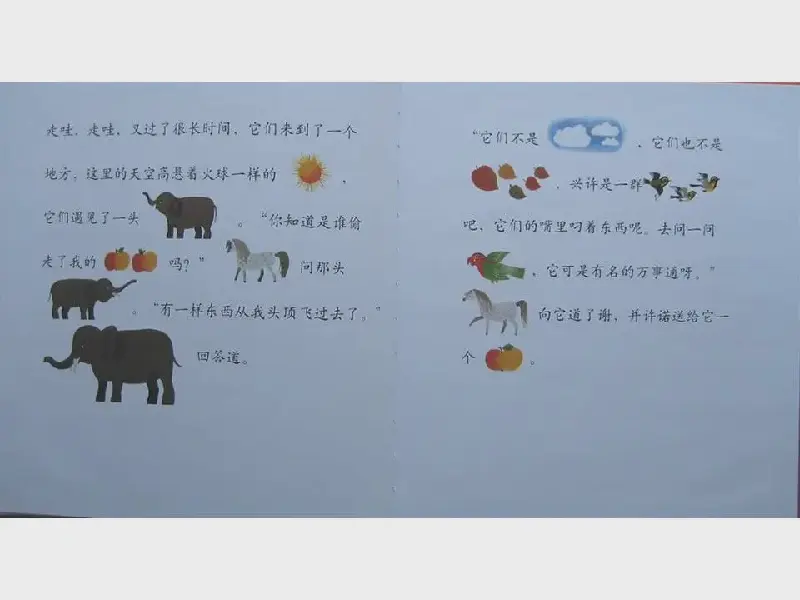 走哇，走哇，又过了很长时间，它们来到了一个
地方。这里的天空高悬着火球一样的，
它们遇见了一头。“你知道是谁偷
走了我的吗？”问那头
。“有一样东西从我头顶飞过去了。”
回答道。
“它们不是，它们也不是
，兴许是一群
吧，它们的嘴里叼着东西呢。去问一问
，它可是有名的万事通呀。”
向它道了谢，并许诺送给它一
个。